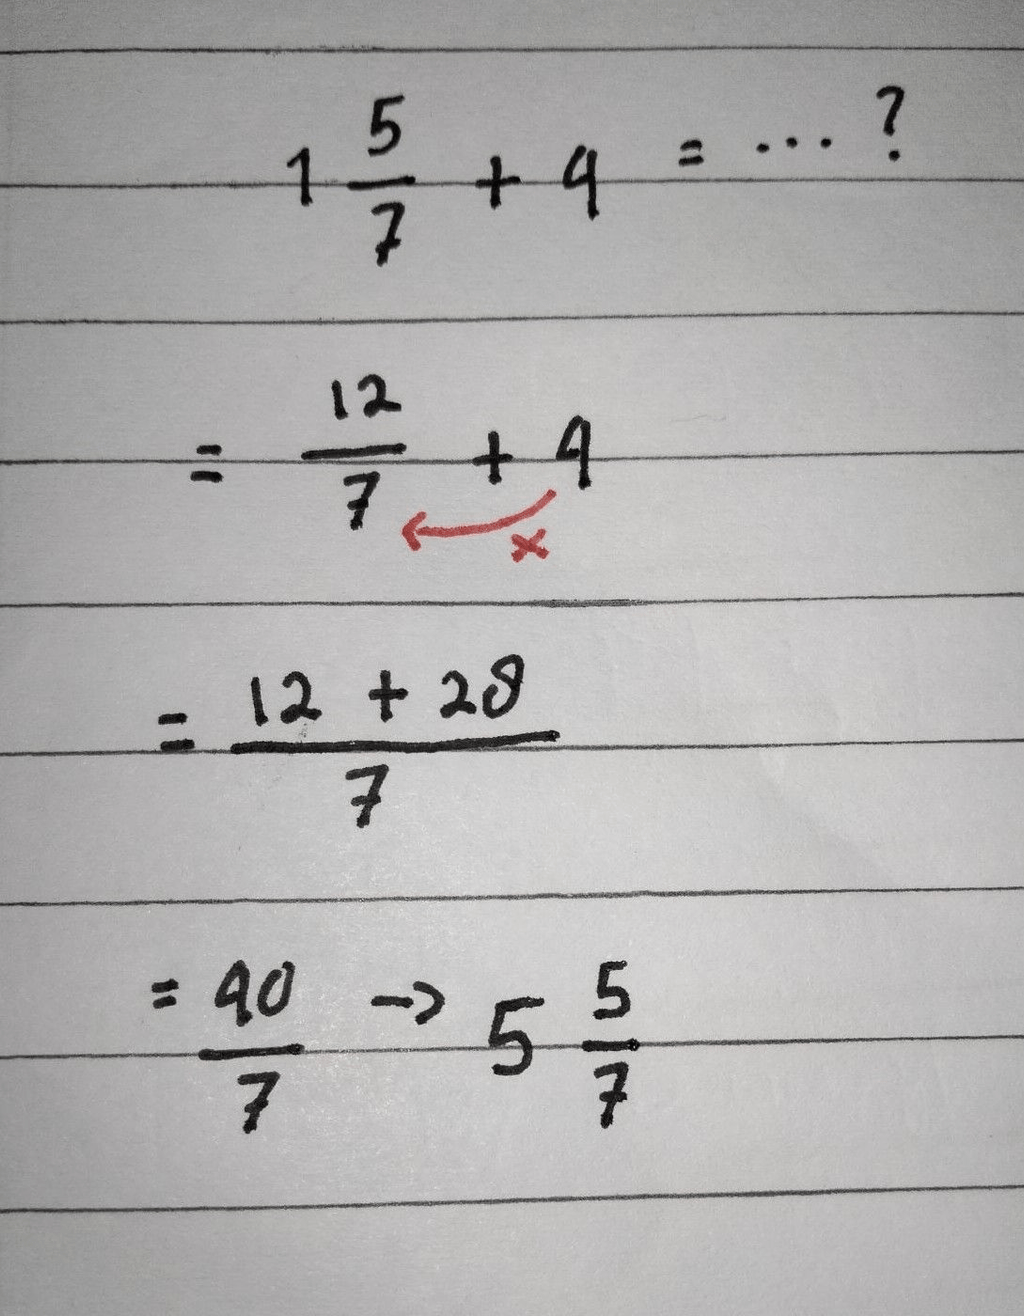 1 5/7 + 4 = ... ?
= 12/7 + 4
×
= 12 + 28 / 7
= 40/7 → 5 5/7